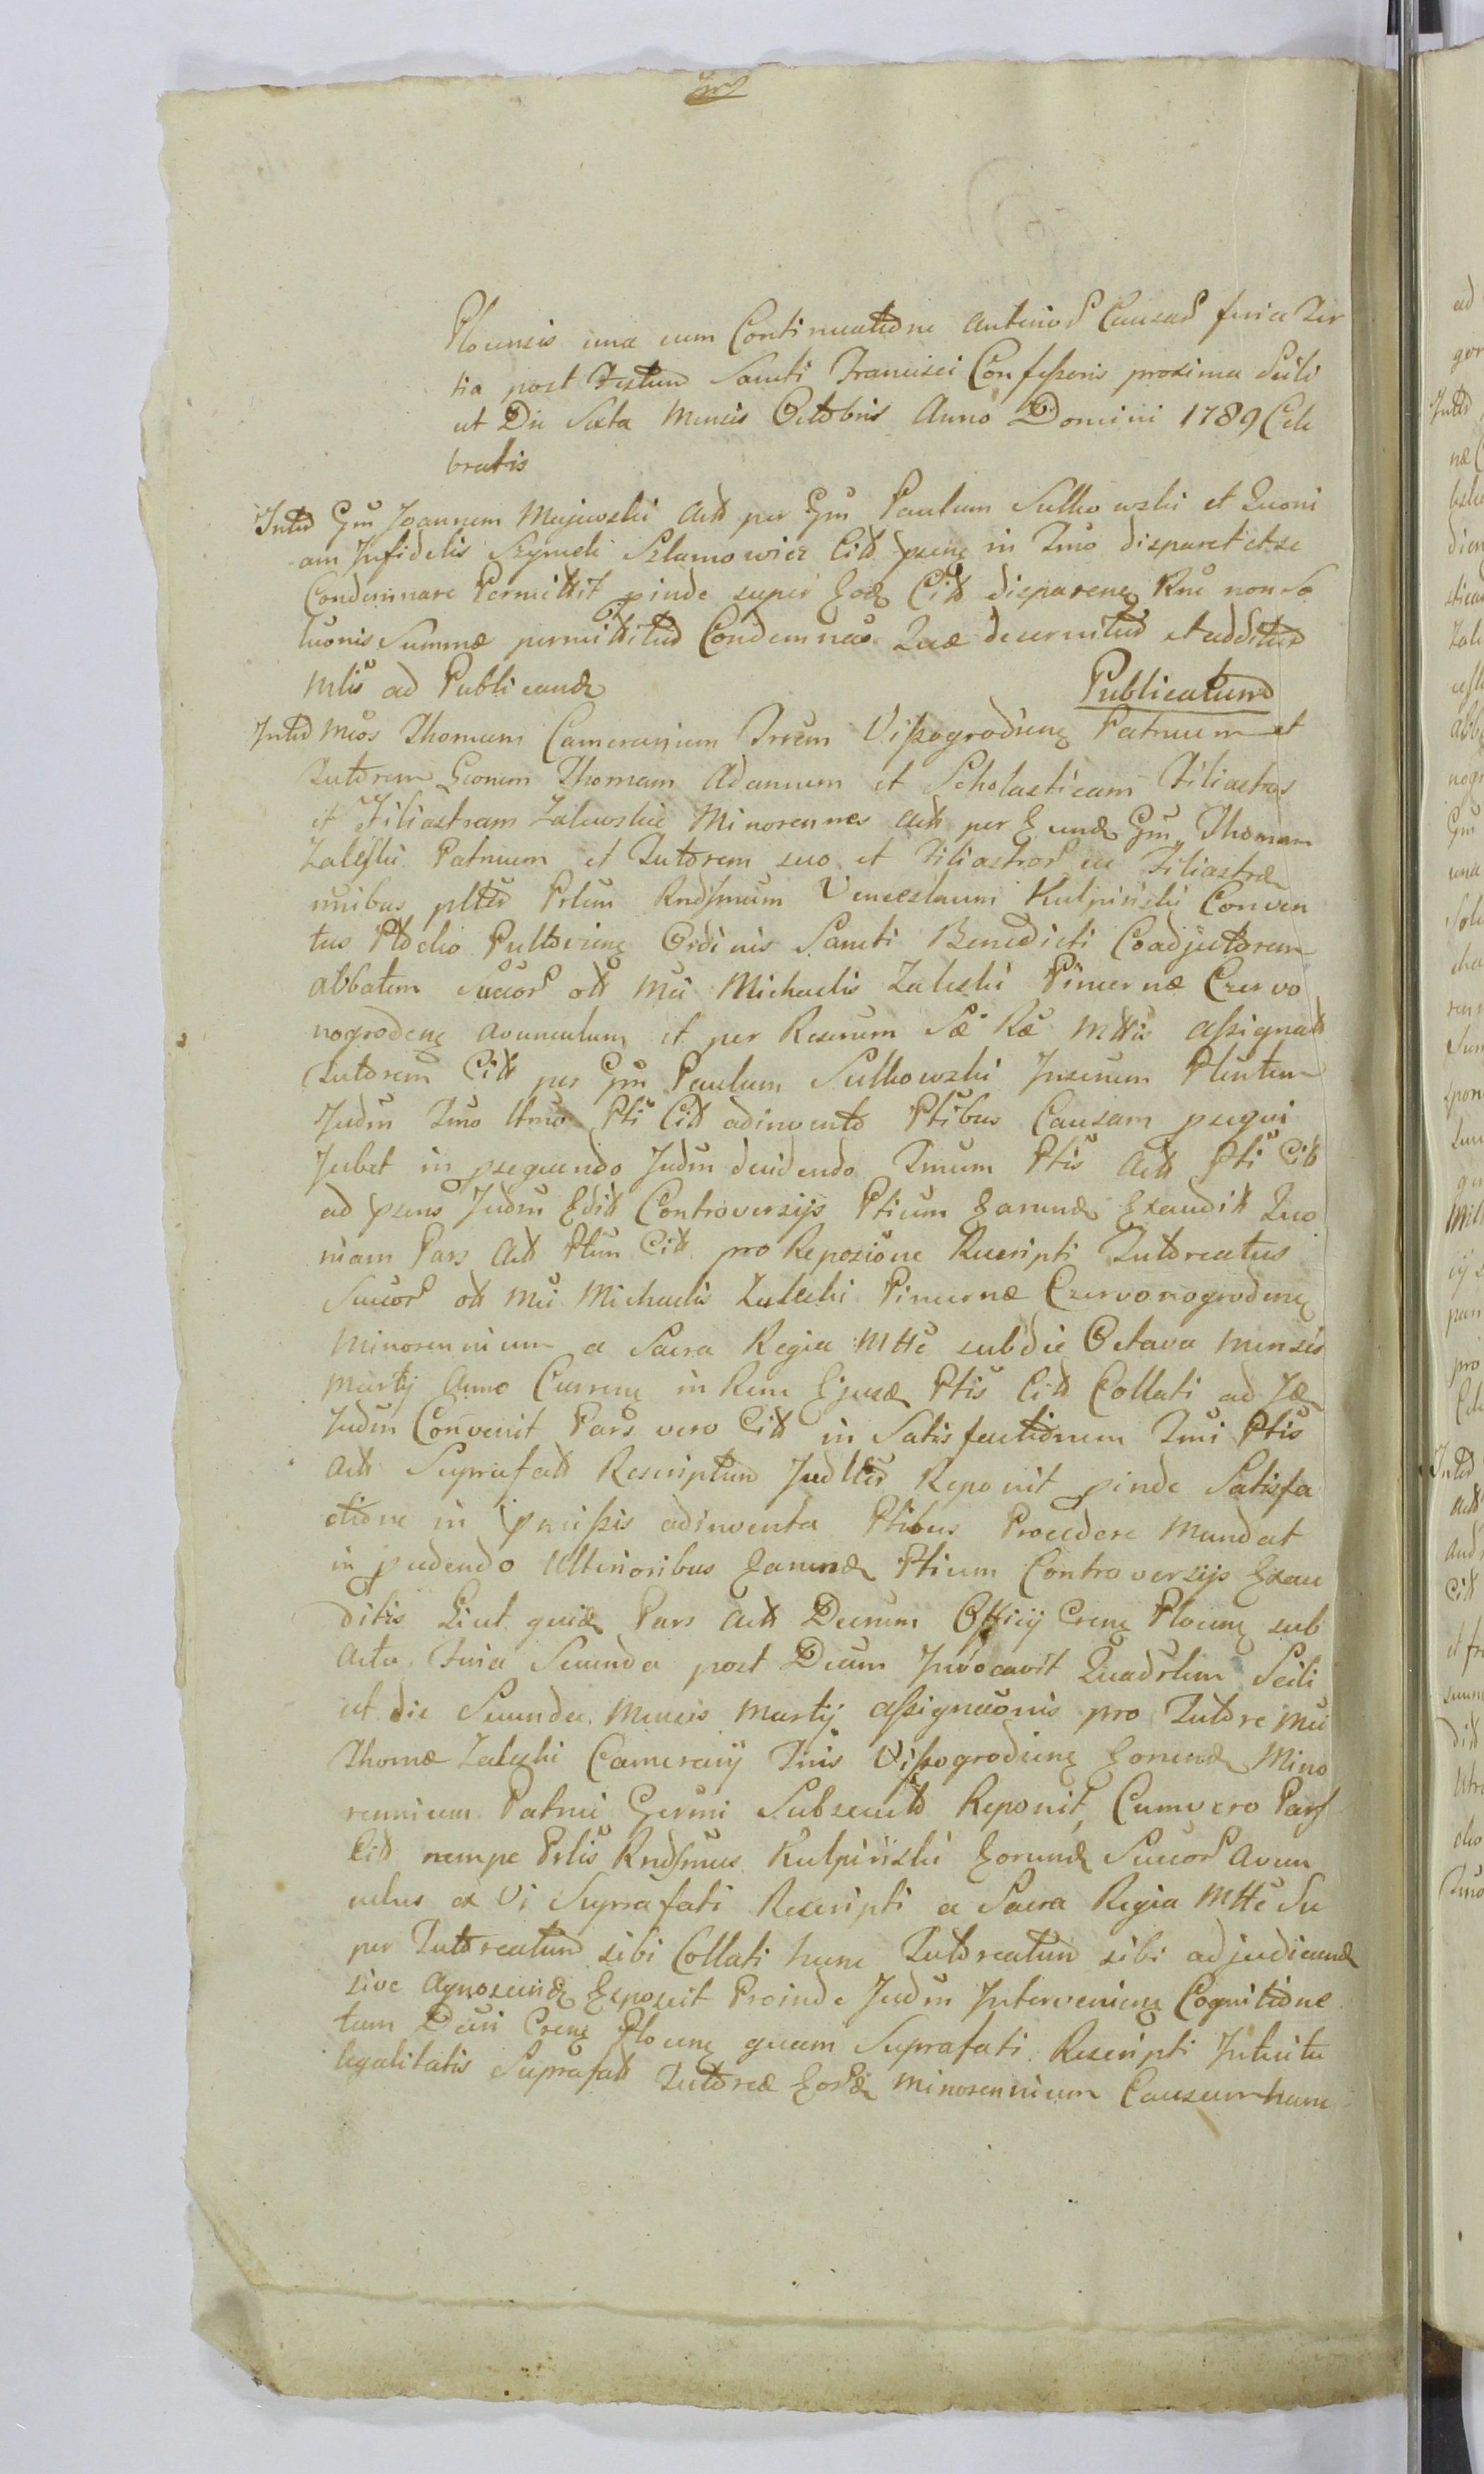 Plocensis una cum Continuatione anterior Causar feria Ter
tia post Festum Sancti Francisci Confessoris proxima Scili
cet Die Sexta Mensis Octobris Anno Domini 1789 Cele
bratis
Inter Gm Joannem Majewski Actt per Gm Paulum Sulkowski et Quoni
am Infidelis Szymek Szlamowicz Citt psens in Tmo disparet et se
Condemnare Permittit pinde super Eod Citt disparen Rne non so
luonis Summæ permittitur Condemnao Quæ decernitur et additur
Mlis ad Publicand Publicatum
Inter Mcos Thomam Camerarium Trrem Vissogrodien Patruum et
Tutorem Gnorum Thomam Adamum et Scholasticam Filiastros
et Filiastram Zalewskie Minorennes Actt per Eund Gm Thomam
Zaleski Patruum et Tutorem suo et Filiastror ac Filiastræ
nnibus plter Prlum Rndssmum Venceslaum Kulpiński Conven
tus Ptocko Pultovien Ordinis Sancti Benedicti Coadjutorem
abbatem Succor ott Mci Michaelis Zaleski Pincernæ Czervo
nogroden avunculum et per Rescrum Sæ Ræ Mttis assignatt
Tutorem Citt per Gm Paulum Sulkowski Juxenum Pltentem
Judm Tmo Itmo Pti Citt adinvento Ptibus Causam pseqvi
Jubet in psequendo Judm decidendo Tmum Ptis Actt Pti Citt
ad psens Judm Editt Controversijs Ptium Earund Exauditt Quo
niam Pars Actt Ptem Citt pro Reposione Rescripti Tutoreatus
Succor ott Mci Michaelis Zaleski Pincernæ Czervonogroden
Minorennium a Sacra Regia Mtte sub die Octava Mensis
Martij Anno Curren in Rem Ejusd Ptis Citt Collati ad Id
Judm Convenit Pars vero Citt in Satisfactionem Tmi Ptis
Actt Suprafatt Rescriptum Judlter Reponit pinde Satisfa
ctione in pmissis adinventa Ptibus Procedere Mandat
in pcedendo Ulterioribus Earund Ptium Controversijs Exau
ditis Licet quid Pars Actt Decrum Officij Cren Plocen sub
Actu Feria Secunda post Dcam Invocavit Quadrlem Scili
cet die Secunda Mensis Martij assignaonis pro Tutore Mci
Thomæ Zaleski Camerarij Tris Vissogrodien Eorund Mino
rennium Patrui Germi Subsecuto Reponit, Cum vero Pars
Citt nempe Prlis Rndssmus Kulpiński Eorund Succor Avun
culus ex Vi Suprafati Rescripti a Sacra Regia Mtte Su
per Tutoreatum sibi Collati hunc Tutoreatum sibi adjudicand
sive Agnoscend Exposcit Proinde Judm Intervenien Cognitione
tam Decri Cren Plocen quam Suprafati Rescripti Intuitu
legalitatis Suprafatt Tutoreæ Eord Minorennium Causam hanc